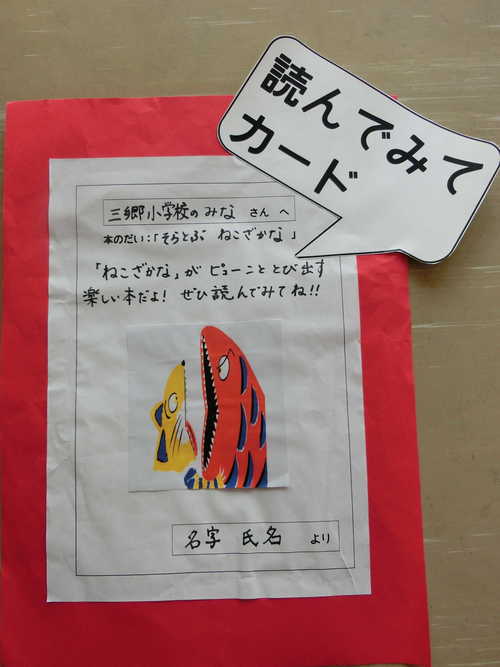 読んでみて
カード
三郷小学校のみな さん へ
本のだい：「そらとぶ ねこざかな」
「ねこざかな」が ピューンと とび出す
楽しい本だよ! ぜひ読んでみてね!!
名字 氏名 より